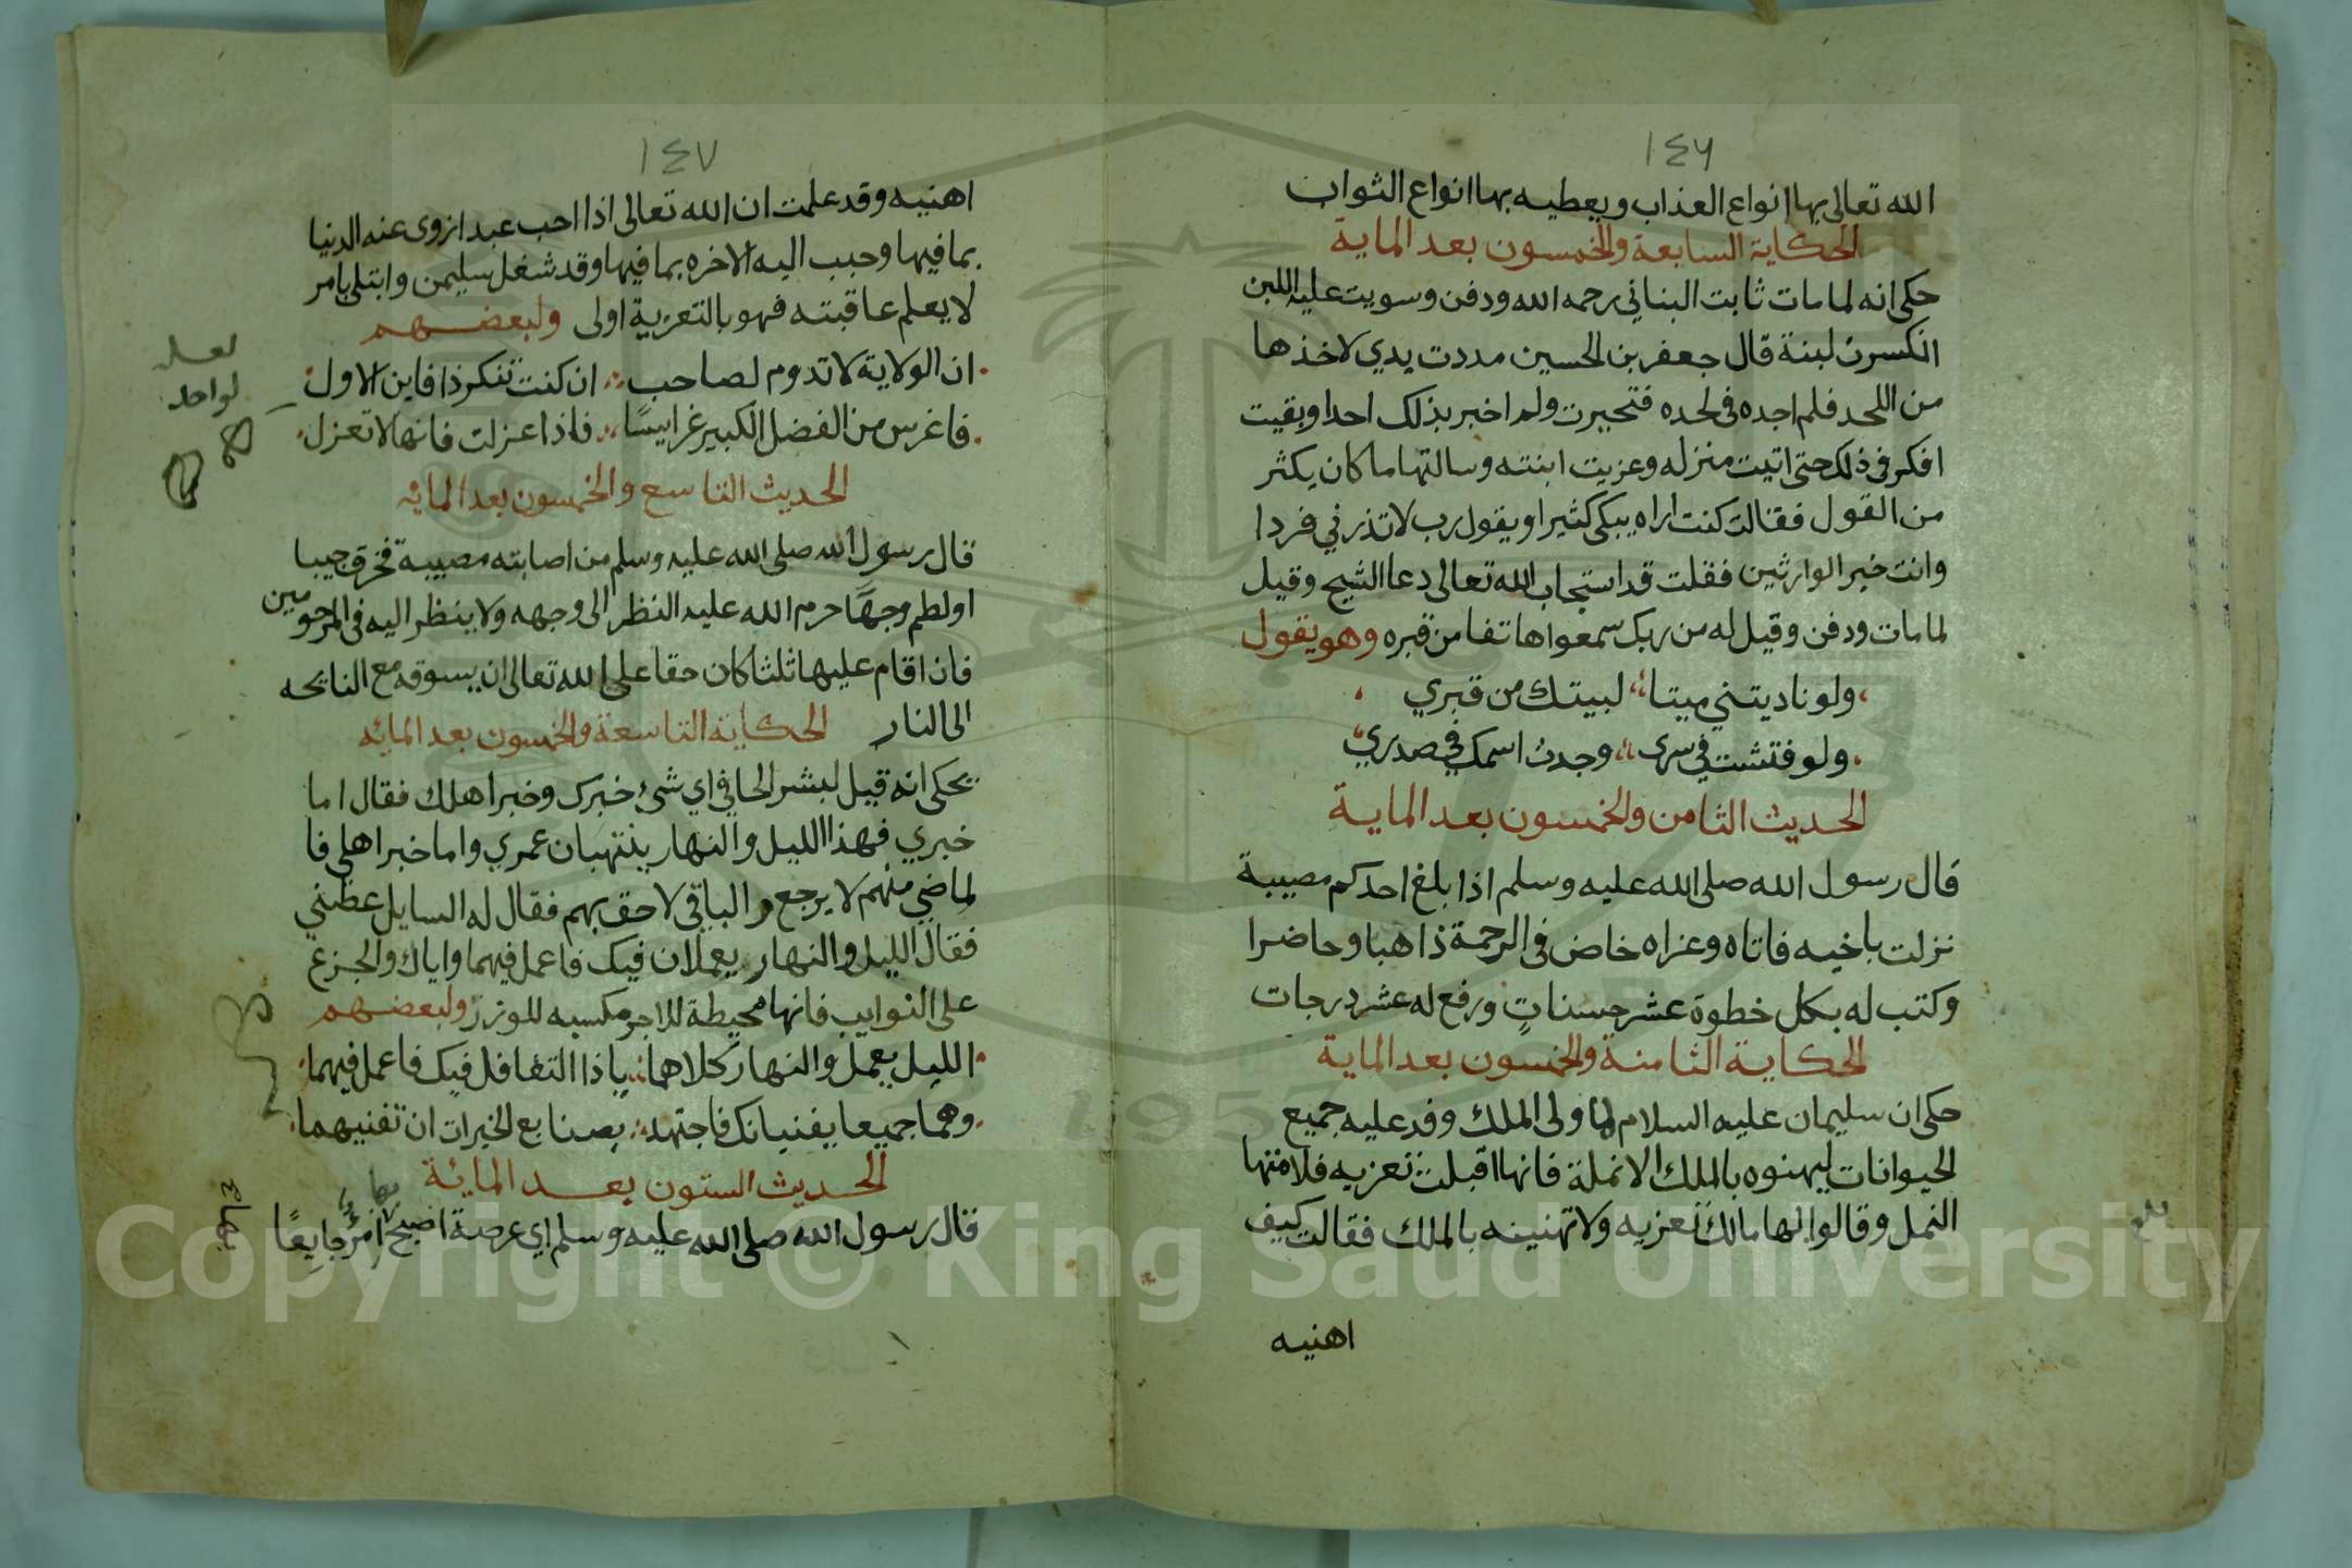 ١٤٦
الله تعالى بها انواع العذاب ويعطيه بها انواع الثواب
الحكاية السابعة والخمسون بعد الماية
حكي انه لما مات ثابت البناني رحمه الله ودفن وسويت عليه اللبن
انكسرت لبنة قال جعفر بن الحسين مددت يدي لاخذها
من اللحد فلم اجده في لحده فتحيرت ولم اخبر بذلك احدا وبقيت
افكر في ذلك حتى اتيت منزله وعزيت ابنته وسالتها ما كان يكثر
من القول فقالت كنت اراه يبكي كثيرا ويقول رب لا تذرني فردا
وانت خير الوارثين فقلت قد استجاب الله تعالى دعا الشيخ وقيل
لما مات ودفن وقيل له من ربك سمعوا هاتفا من قبره وهو يقول
ولو ناديتني ميتا لبيتك من قبري
ولو فتشت في سرى وجدت اسمك في صدري
الحديث الثامن والخمسون بعد الماية
قال رسول الله صلى الله عليه وسلم اذا بلغ احدكم مصيبة
نزلت باخيه فاتاه وعزاه خاض في الرحمة ذاهبا وحاضرا
وكتب له بكل خطوة عشر حسنات ورفع له عشر درجات
الحكاية الثامنة والخمسون بعد الماية
حكي ان سليمان عليه السلام لما ولى الملك وفد عليه جميع
الحيوانات ليهنوه بالملك الا نملة فانها اقبلت تعزيه فلامتها
النمل وقالوا لها مالك تعزيه ولا تهنينه بالملك فقالت كيف
بلغ
اهنيه
١٤٧
اهنيه وقد علمت ان الله تعالى اذا احب عبدا زوى عنه الدنيا
بما فيها وحبب اليه الاخره بما فيها وقد شغل سليمن وابتلي بامر
لا يعلم عاقبته فهو بالتعزية اولى ولبعضهم
ان الولاية لا تدوم لصاحب ان كنت تنكر ذا فاين الاول
فاغرس من الفضل الكبير غرايسًا فاذا عزلت فانها لا تعزل
لعله
لواحد
الحديث التاسع والخمسون بعد المائه
قال رسول الله صلى الله عليه وسلم من اصابته مصيبة فخرق جيبا
او لطم وجهًا حرم الله عليه النظر الى وجهه ولا ينظر اليه في المرحومين
فان اقام عليها ثلثا كان حقا على الله تعالى ان يسوقه مع النايحه
الى النار الحكاية التاسعة والخمسون بعد المائه
يحكى انه قيل لبشر الحافي اي شيء خبرك وخبر اهلك فقال اما
خبري فهذا الليل والنهار ينتهبان عمري واما خبر اهلي فا
لماضي منهم لا يرجع والباقي لاحق بهم فقال له السايل عظني
فقال الليل والنهار يعملان فيك فاعمل فيهما واياك والجزع
على النوايب فانها محيطة للاجر مكسبه للوزر ولبعضهم
الليل يعمل والنهار كلاهما يا ذا التغافل فيك فاعمل فيهما
وهما جميعا يفنيانك فاجتهد بصنايع الخيرات ان تفنيهما
الحديث الستون بعد المائة
قال رسول الله صلى الله عليه وسلم اي عرصة اصبح امرؤ جايعًا
Copyright © King Saud University
1957